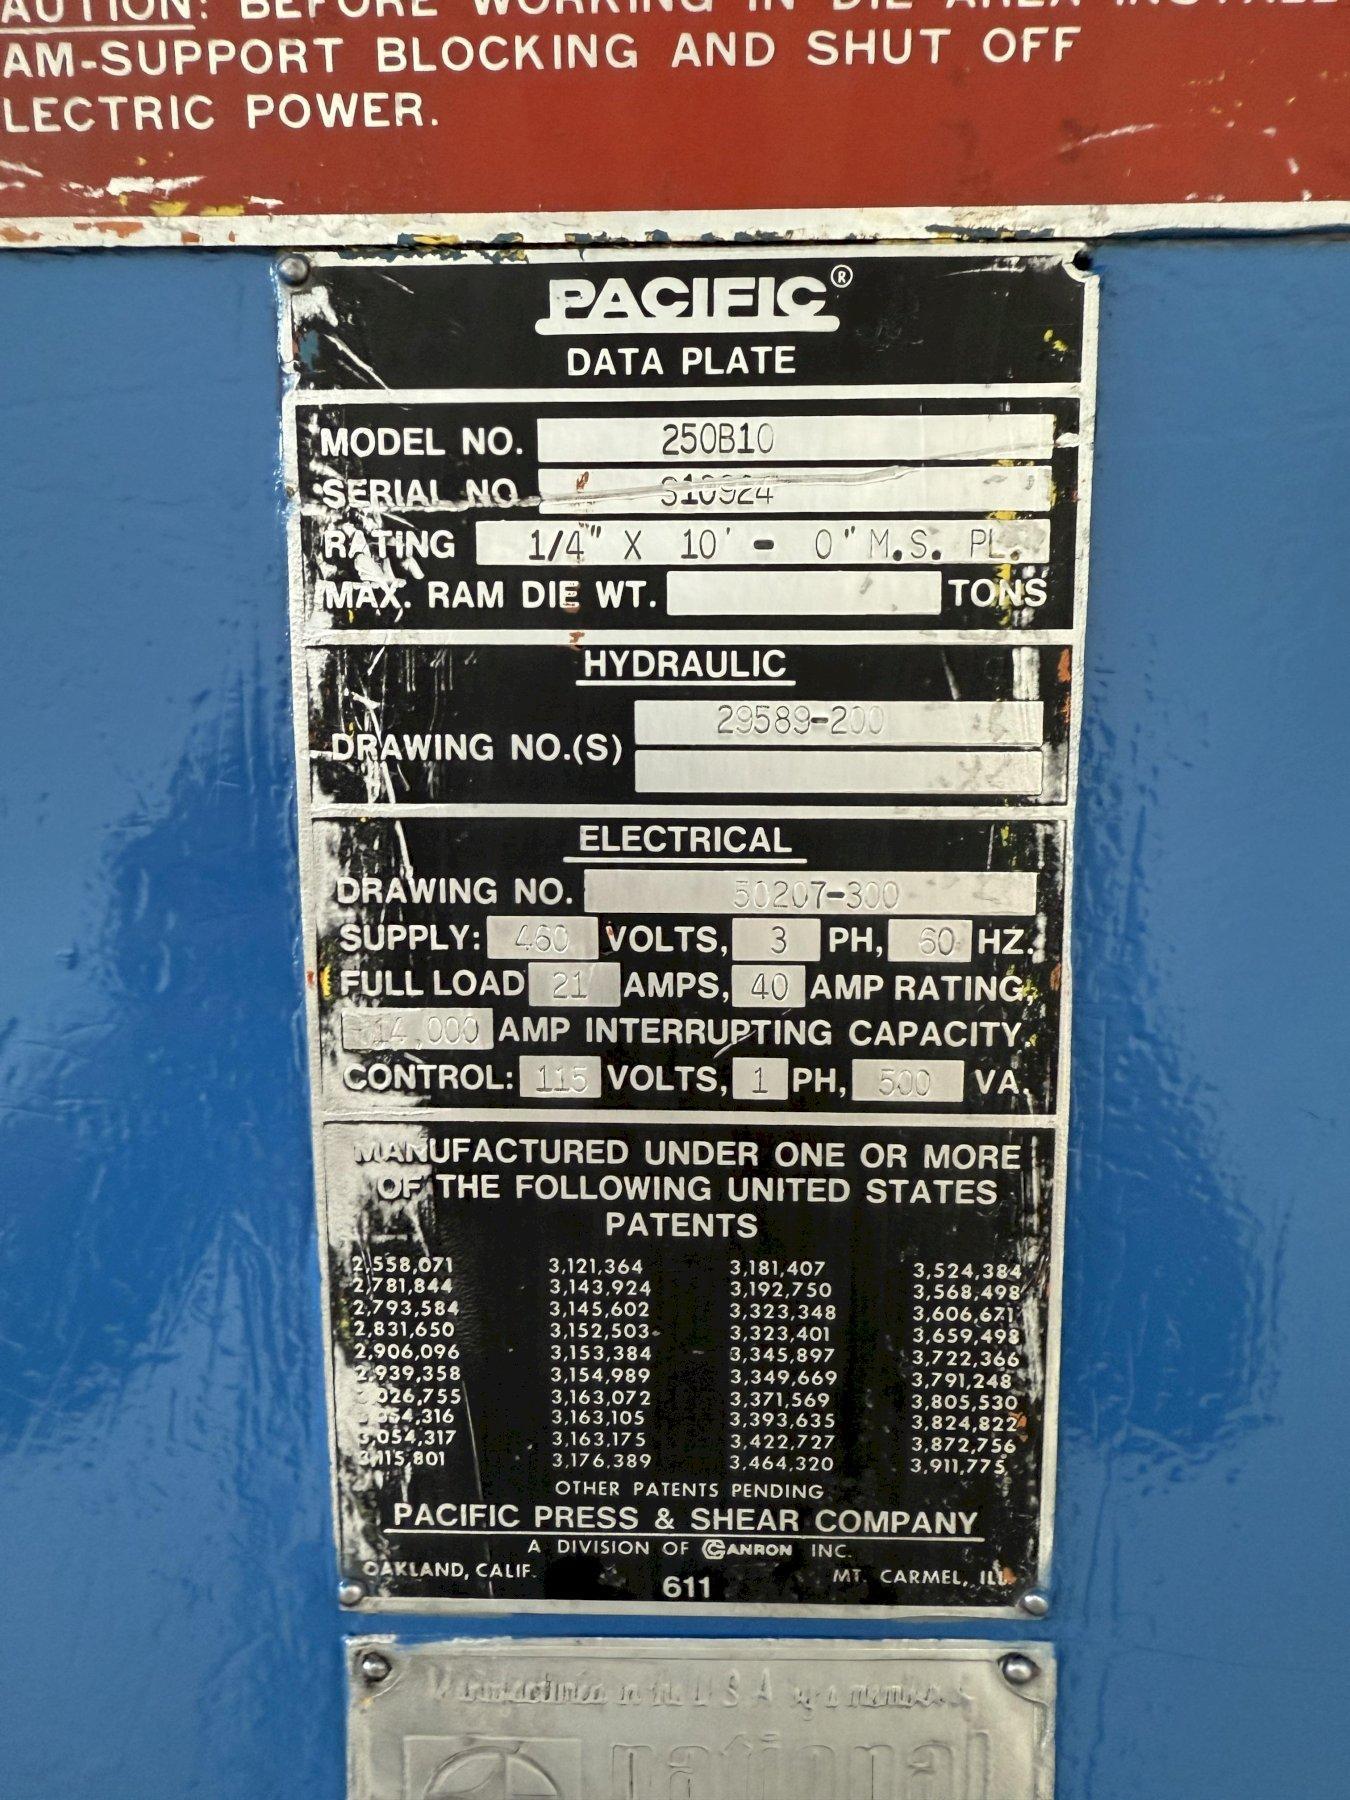 AUTION: BEFORE WORKING IN DIE AREA INSTALL
AM-SUPPORT BLOCKING AND SHUT OFF
LECTRIC POWER.
PACIFIC®
DATA PLATE
MODEL NO. 250B10
SERIAL NO. S10924
RATING 1/4" X 10' - 0" M.S. PL.
MAX. RAM DIE WT. TONS
HYDRAULIC
DRAWING NO.(S) 29589-200
ELECTRICAL
DRAWING NO. 50207-300
SUPPLY: 460 VOLTS, 3 PH, 60 HZ.
FULL LOAD 21 AMPS, 40 AMP RATING,
14,000 AMP INTERRUPTING CAPACITY.
CONTROL: 115 VOLTS, 1 PH, 500 VA.
MANUFACTURED UNDER ONE OR MORE
OF THE FOLLOWING UNITED STATES
PATENTS
2,558,071 3,121,364 3,181,407 3,524,384
2,781,844 3,143,924 3,192,750 3,568,498
2,793,584 3,145,602 3,323,348 3,606,671
2,831,650 3,152,503 3,323,401 3,659,498
2,906,096 3,153,384 3,345,897 3,722,366
2,939,358 3,154,989 3,349,669 3,791,248
3,026,755 3,163,072 3,371,569 3,805,530
3,054,316 3,163,105 3,393,635 3,824,822
3,054,317 3,163,175 3,422,727 3,872,756
3,115,801 3,176,389 3,464,320 3,911,775
OTHER PATENTS PENDING
PACIFIC PRESS & SHEAR COMPANY
A DIVISION OF CANRON INC.
OAKLAND, CALIF. MT. CARMEL, ILL.
611
Manufactured in the U S A by a member
national